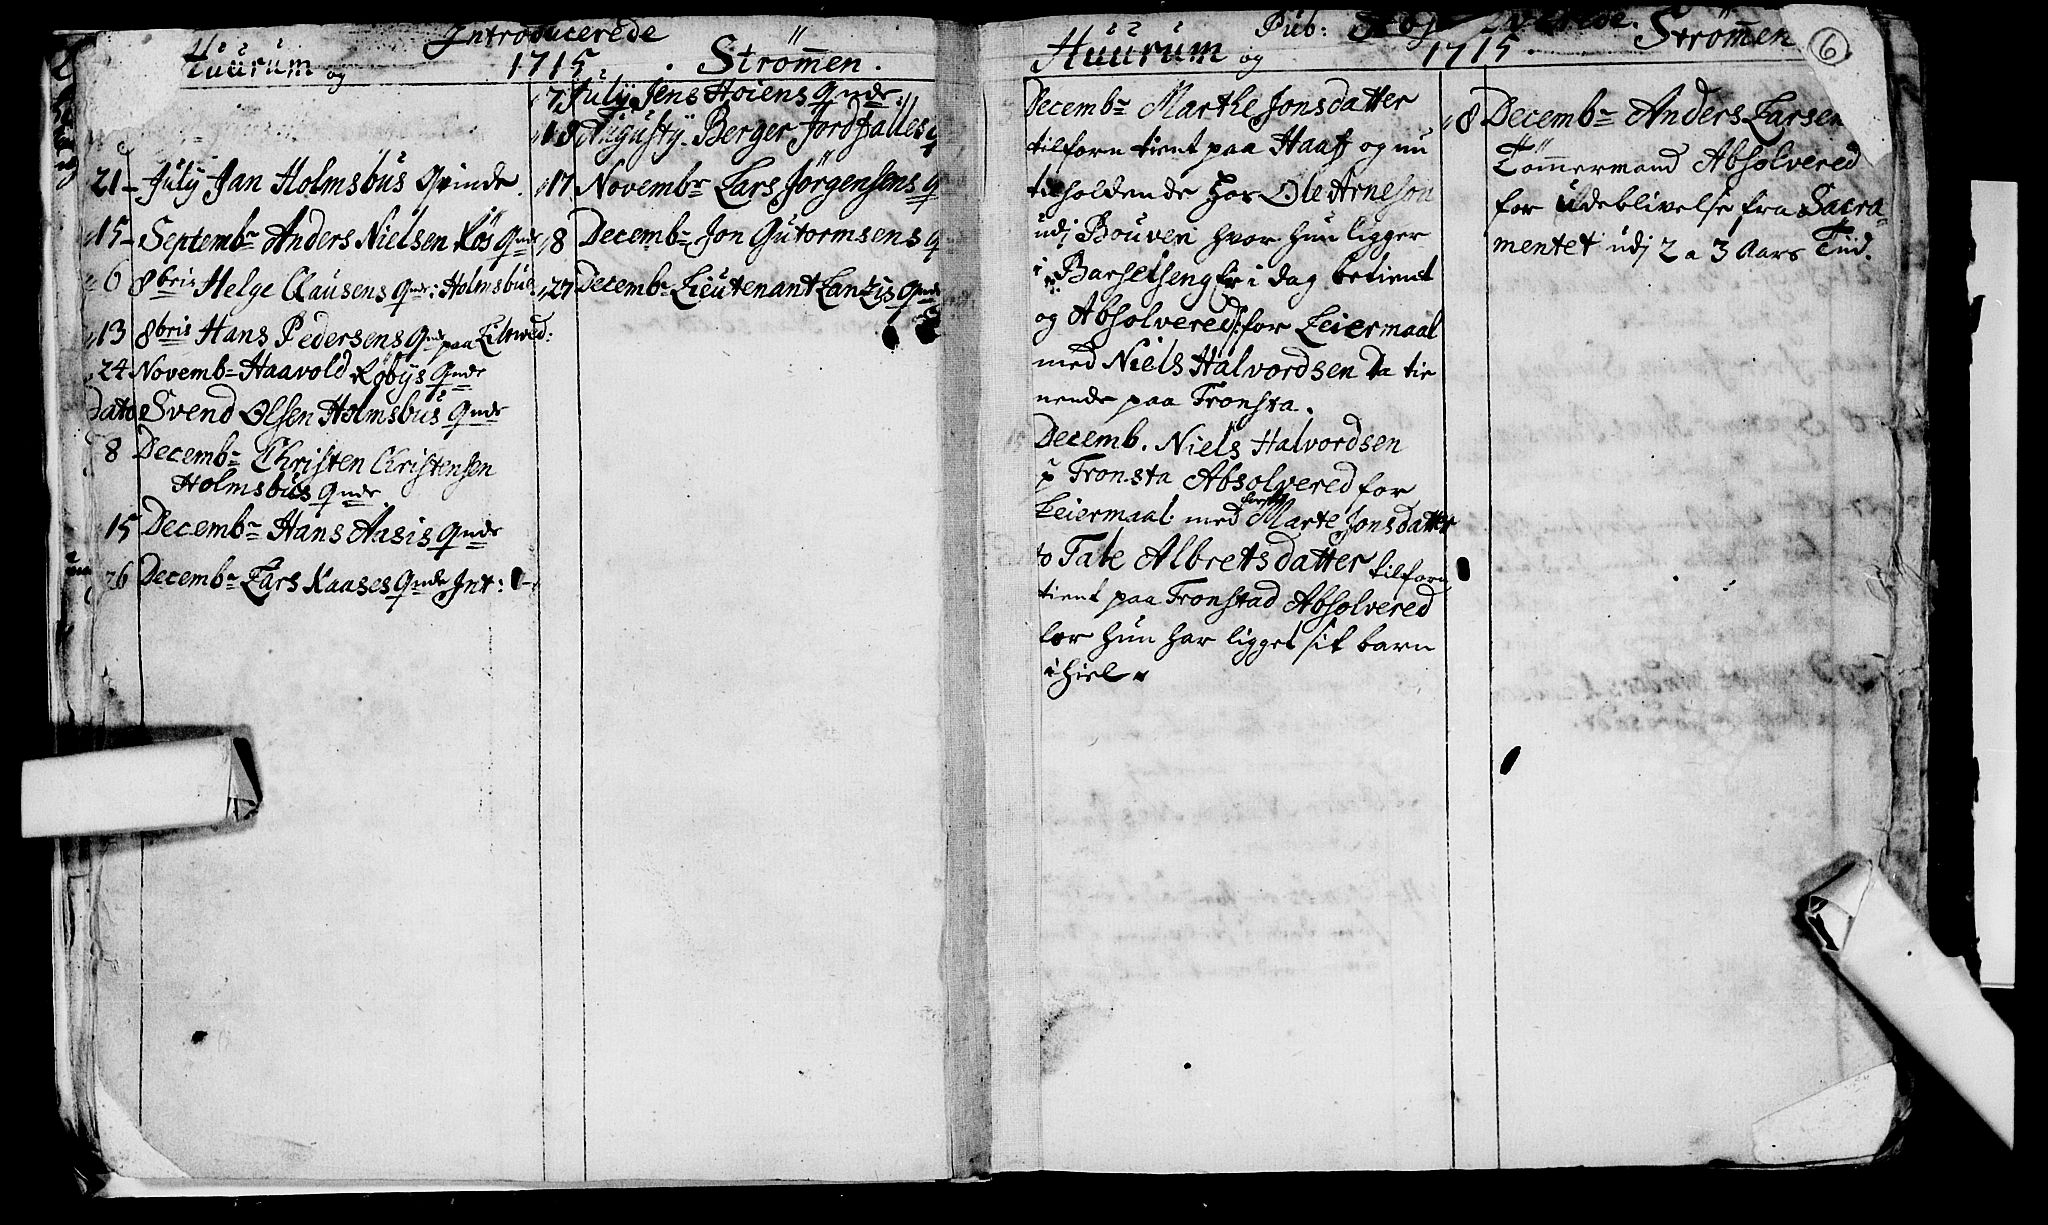 Introducerede
Huurum og 1715. Strömen.
21 July Jan Holmsbus Qvinde.
15 Septembr Anders Nielsen Rös Qnde
6 8bris Helge Clausens Qnde: Holmsbue
13 8bris Hans Pedersens Qnde paa
24 Novemb Haavold Röbÿs Qnde
Dato Svend Olsen Holmsbus Qnde
8 Decembr Christen Christensen
Holmsbus Qnde
15 Decembr Hans Aasis Qnde
26 Decembr Lars Kaases Qnde Int:
7 July Jens Höiens Qnde.
18 Augusty. Berger Jordfalles Q
17 Novembr Lars Jörgensens Q
8 Decembr Jon Gutormsens Q
27 Decembr Lieutenant Lanzis Qnde
Pub:
Huurum og 1715. Strömen 6
Decembr Marthe Jonsdatter
tilforn tient paa Haaf og nu
tilholdende hos Ole Arneson
udj Bouveri hvor hun ligger
i Barselseng Er i dag betient
og Absolvered for Leiermaal
med Niels Halvordsen Da tie
nende paa Tronsta.
15 Decemb. Niels Halvordsen
p Tronsta Absolvered for
Leiermaal med Marte Jonsdatter
to Tale Albretsdatter tilforn
tient paa Tronstad Absolvered
for hun har ligget sit barn
ihiel.
8 Decembr Anders Larsen
Tömermand Absolvered
for Udeblivelse fra Sacra-
mentet udj 2 a 3 Aars Tiid.